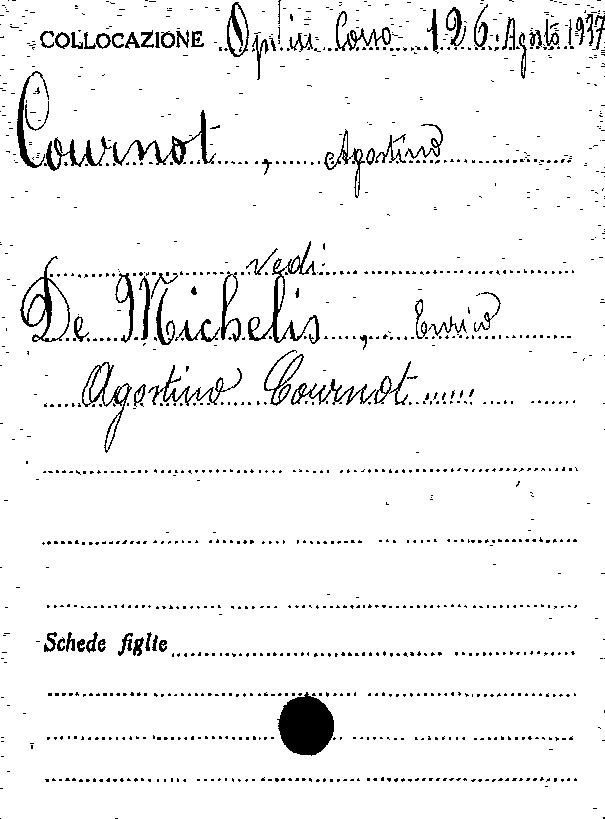 COLLOCAZIONE Op. in Corso 126. Agosto 1937
Cournot, Agostino
vedi:
De Michelis, Enrico
Agostino Cournot......
Schede figlie